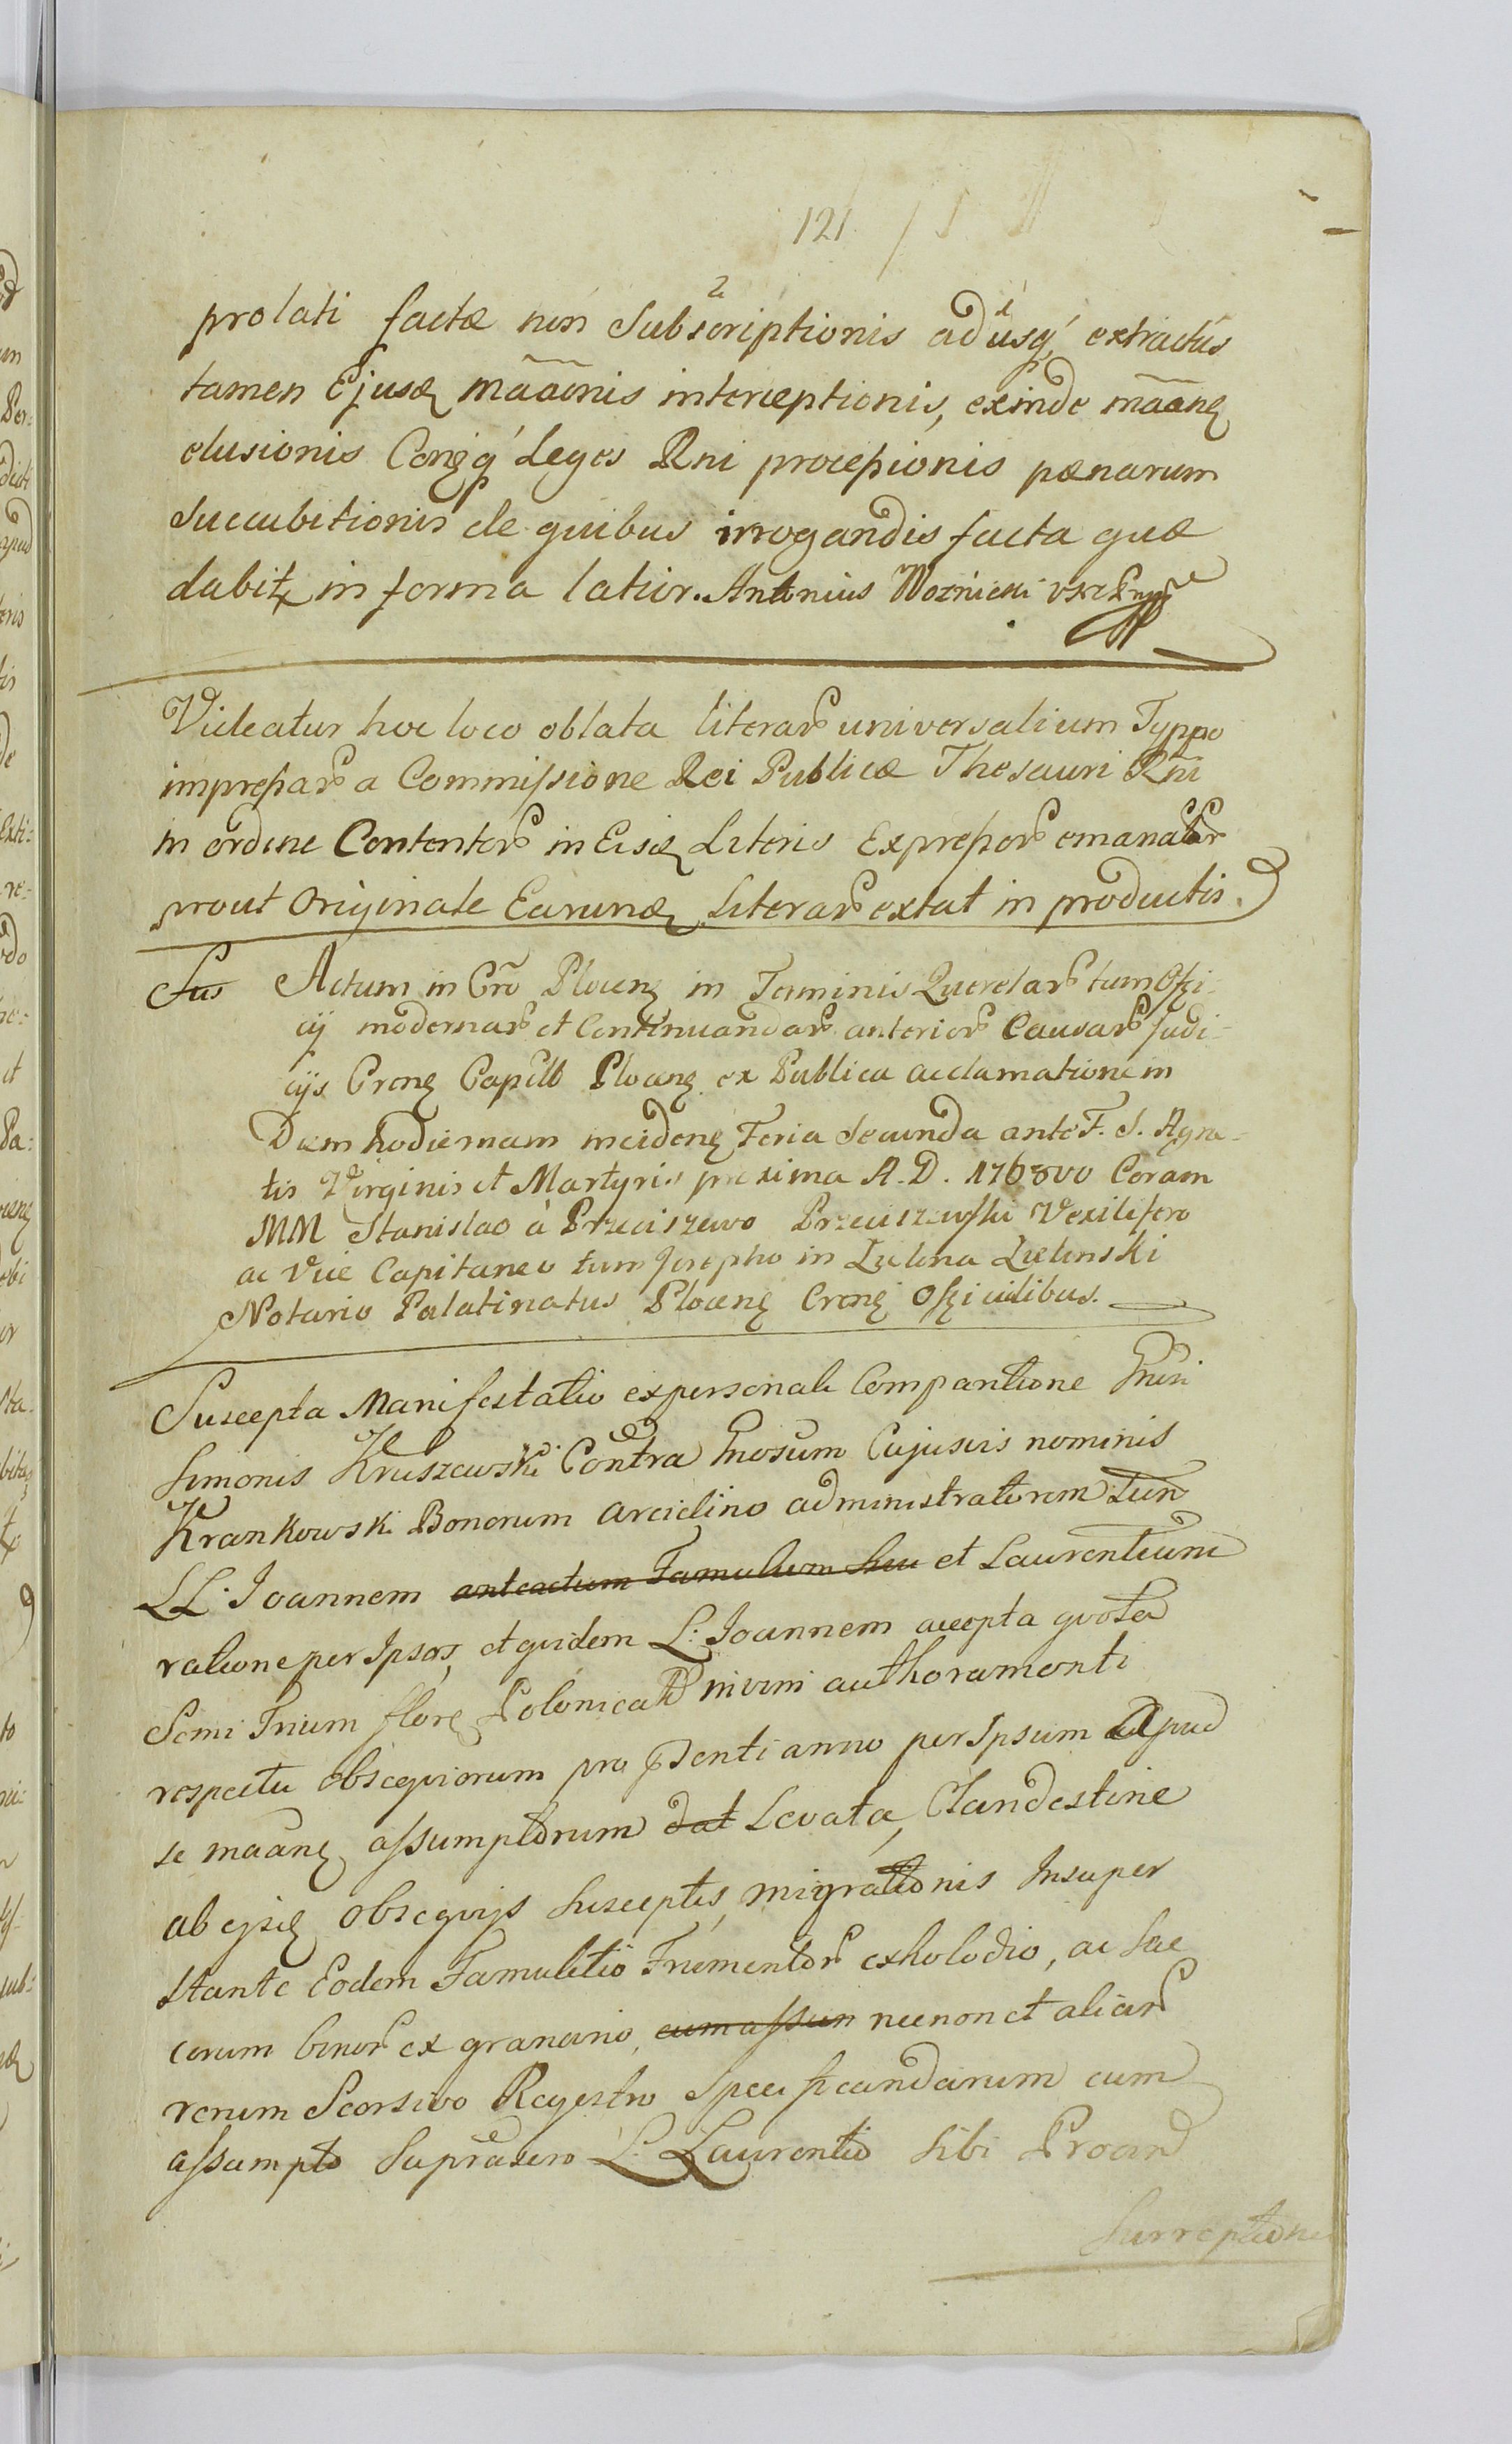 121
prolati factæ non Subscriptionis ad usq́ extractus
tamen Ejusq mããonis interceptionis, exinde mããnę
elusionis Conęq́ Leges Rni procepionis pænarum
Succubitionis de quibus irrogandis facta quæ
dabitx in forma latior. Antonius Woznicki
Videatur hoc loco oblata literar universalium Typpo
impreßar a Commißione Rei Publicæ Thesauri Rni
in ordine Contentor in Eisq Literis Expreßor emanatar
prout Originale Earunq Literar extat in productis.
Sus Actum in Cro Plocenę in Terminis Querelar tum Offi-
cij modernar et Continuandar anterior Causar Judi-
cijs Crenę Capitlb Plocenę ex Publica acclamatione in
Diem hodiernam incidenę Feria Secunda ante F. S. Agne-
tis Virginis et Martyris proxima A. D. 1768vo Coram
MM Stanislao à Przeciszewo Przeciszewski Vexilifero
ac Vice Capitaneo tum Josepho in Zielona Zielinski
Notario Palatinatus Plocenę Crenę Officialibus.
Suscepta Manifestatio ex personali Comparitione Gnsi
Simonis Kruszewski Contra Gnosum Cujusvis nominis
Krankowski Bonorum arcidino administratorem tum
LL. Joannem anteactum Famulum seu et Laurentium
ratione per Ipsos, et quidem L: Joannem accepta quota
Semi Trium flore Polonicali nivini authoramenti
respectu obsequiorum pro pdenti anno per Ipsum Apud
se maanę assumptorum dat Levata, Clandestine
ab ejsę obsequijs susceptis, migrationis Insuper
stante Eodem Famulitio Frumentor ex holodio, ac Sac
corum binor ex granario, cum assum necnon et aliar
rerum Seorsivo Regestro Specificandarum cum
assumpto Suprascro L: Laurentio Sibi Proand
Surreptione